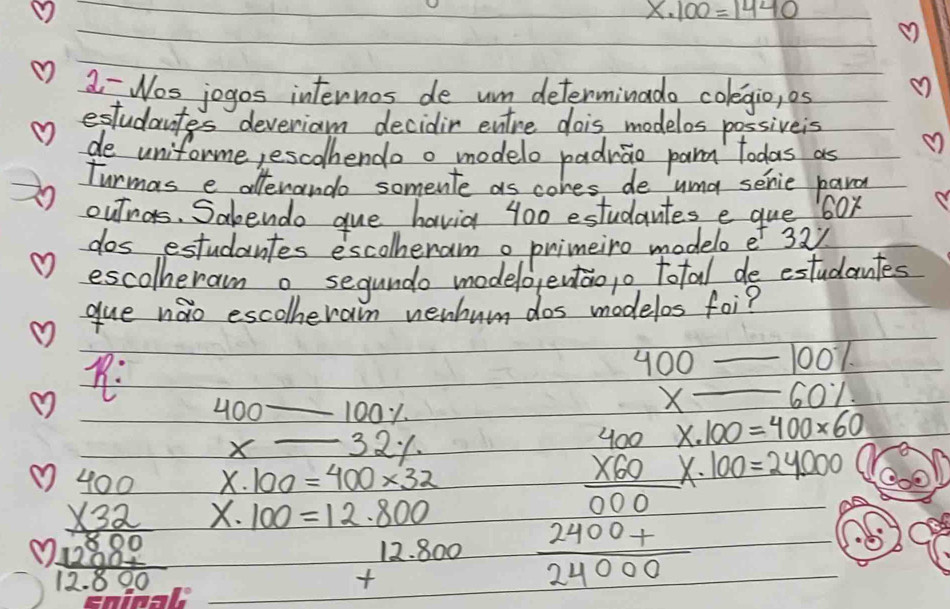 x.100=1440
2-Nos jogos internos de um determinado colégio, os
estudantes deveriam decidir entre dois modelos possiveis
de uniforme, escolhendo o modelo padrão para todas as
Turmas e alterando somente as cores de uma série para
outras. Sabendo que havia 400 estudantes e que 60%
dos estudantes escolheram o primeiro modelo e 32%
escolheram o segundo modelo, então, o total de estudantes
que não escolheram nenhum dos modelos foi?
R:
400 — 100%
x — 60%
400 — 100%
x — 32%
400 x.100=400x60
x60 x.100=24000
000
2400+
24000
400 x.100=400x32
x32 x.100=12.800
800
1200+
12.800
12.800
+
spiral